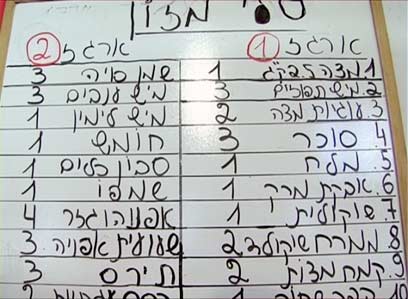 סל מזון
ארגז 1
1. מצה 2.5 ק"ג 1
2. מיץ תפוזים 3
3. עוגיות מצה 2
4. סוכר 3
5. מלח 1
6. אבקת מרק 1
7. שוקולית 1
8. ממרח שוקולד 2
9. קמח מצות 2
10.
ארגז 2
שמן סויה 3
מיץ ענבים 3
מיץ לימון 1
חומץ 1
סבון כלים 1
שמפו 1
אפונה וגזר 4
שעועית אפויה 3
תירס 3